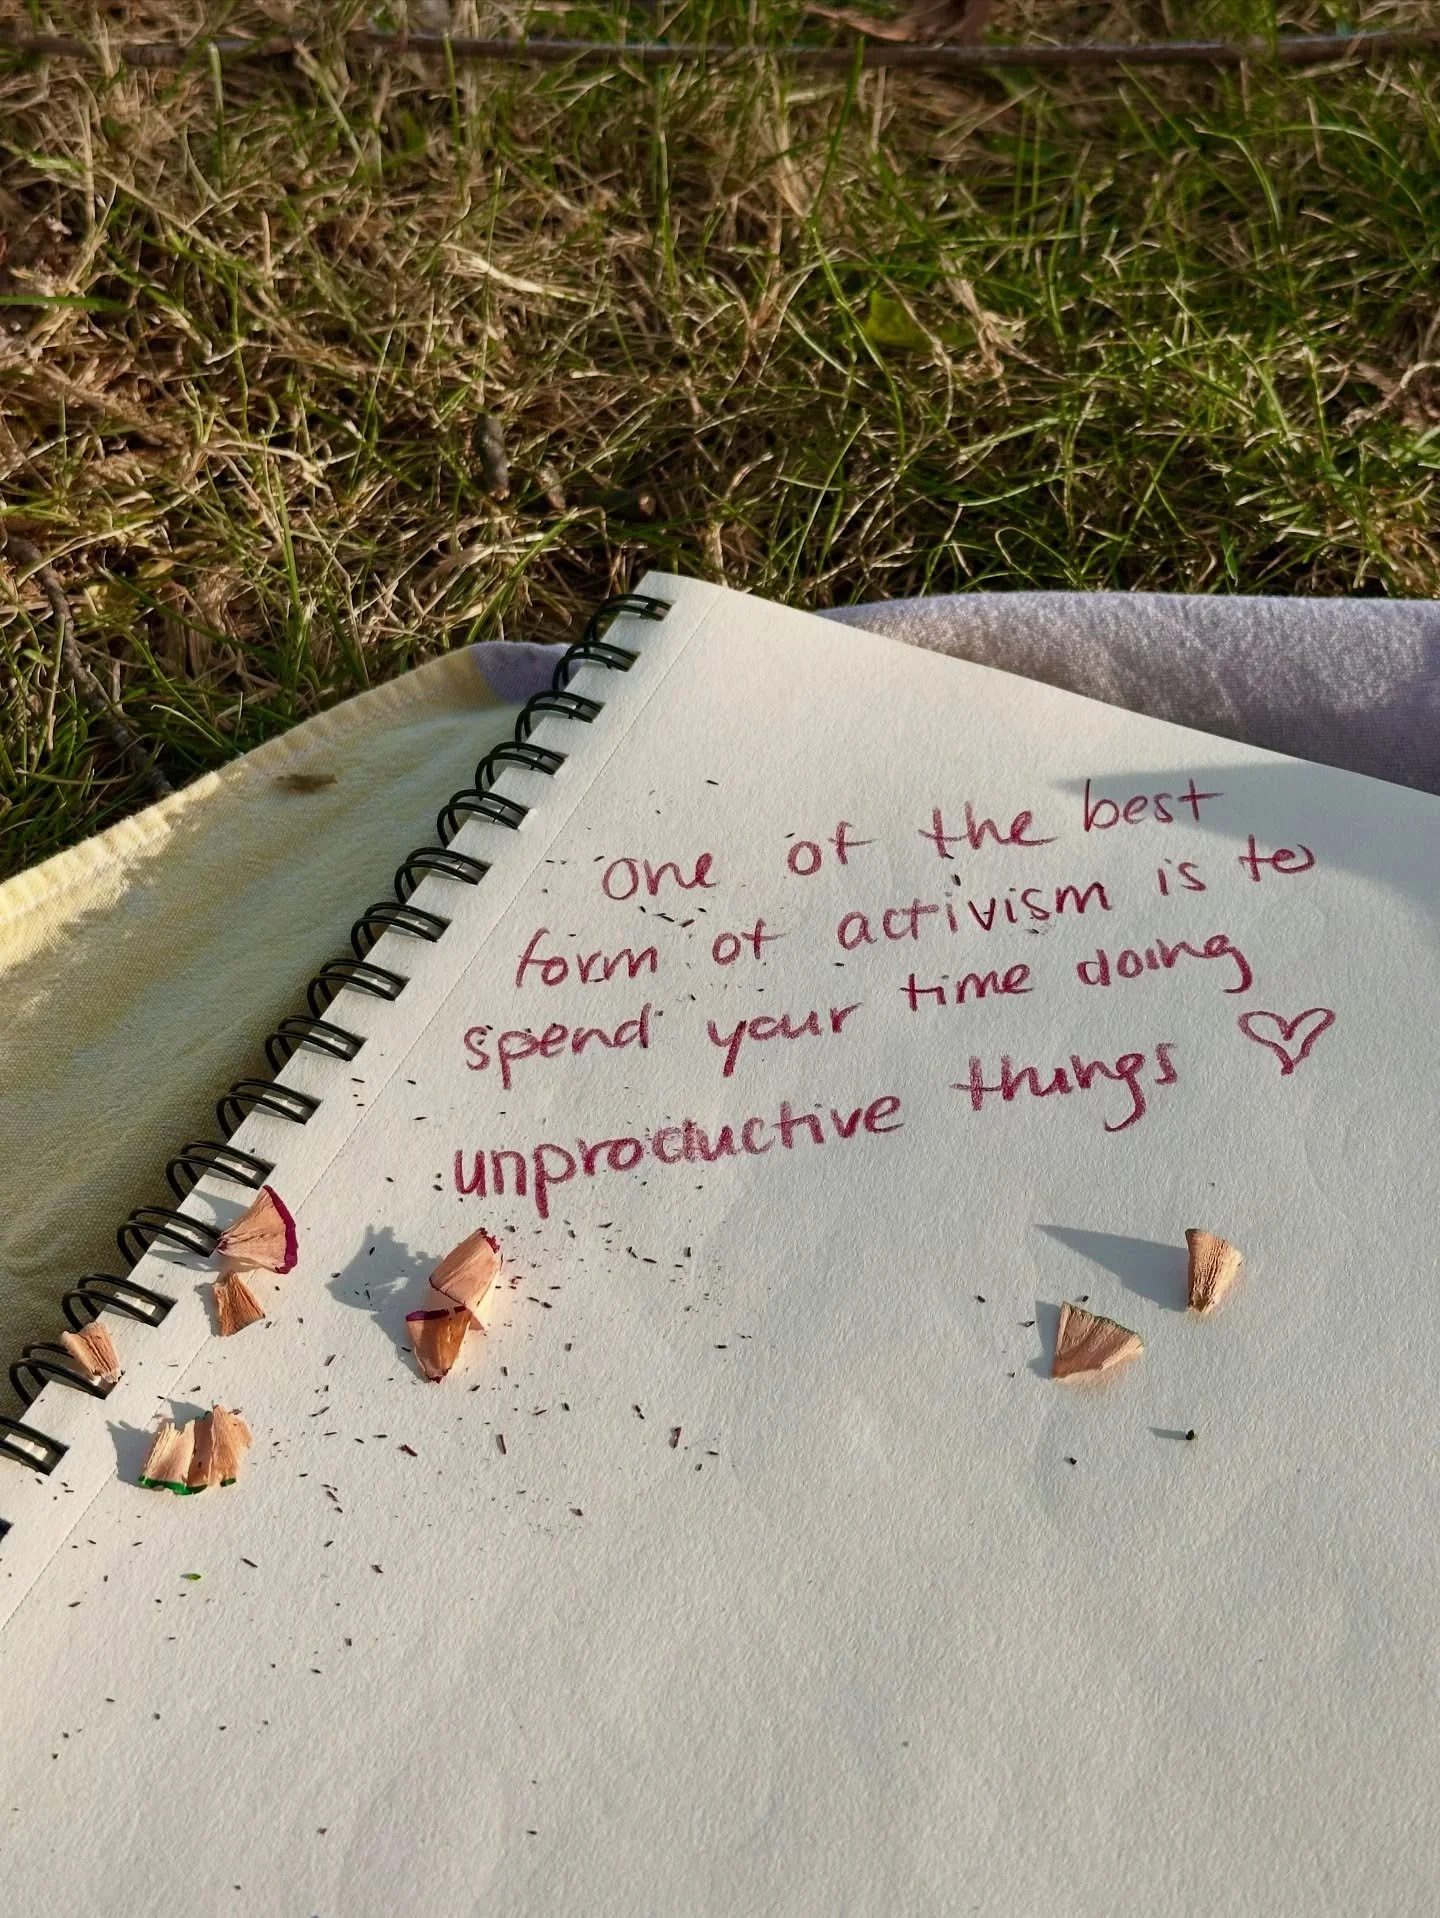 One of the best
form of activism is to
spend your time doing
unproductive things ♡